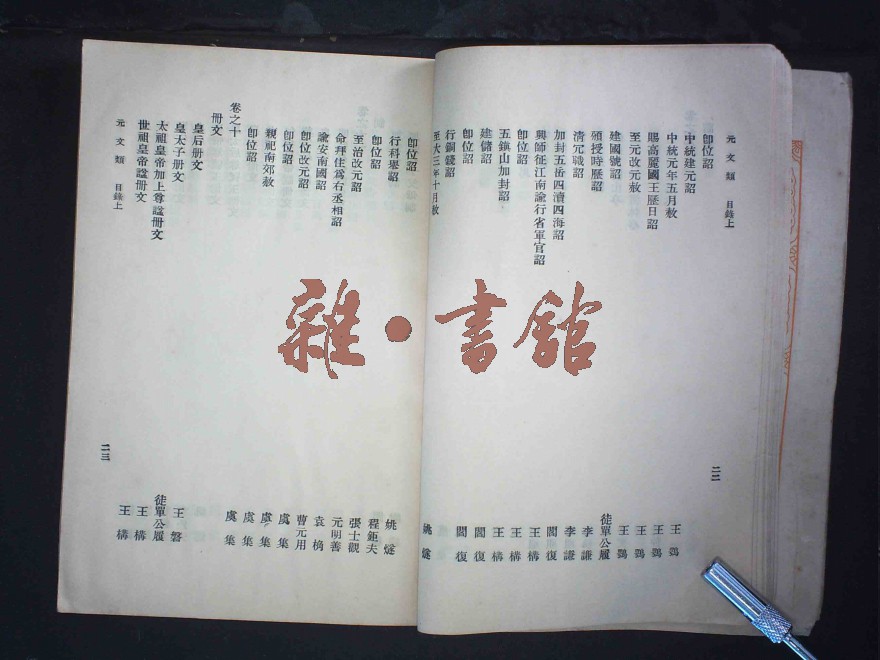 元文類 目錄上
卽位詔
中統建元詔 王鶚
中統元年五月赦 王鶚
賜高麗國王曆日詔 王鶚
至元改元赦 王鶚
建國號詔 徒單公履
頒授時曆詔 李謙
清冗職詔 李謙
加封五岳四瀆四海詔 閻復
興師征江南諭行省軍官詔 王構
卽位詔 王構
五鎮山加封詔 王構
建儲詔 閻復
卽位詔 閻復
行銅錢詔
至大三年十月赦 姚燧
二二
卽位詔 姚燧
行科舉詔 程鉅夫
卽位詔 張士觀
至治改元詔 元明善
命拜住爲右丞相詔 袁桷
諭安南國詔 曹元用
卽位改元詔 虞集
卽位詔 虞集
親祀南郊赦 虞集
卽位詔 虞集
卷之十
冊文
皇后册文 王磐
皇太子册文 徒單公履
太祖皇帝加上尊諡册文 王構
世祖皇帝諡册文 王構
元文類 目錄上
二三
雜·書館